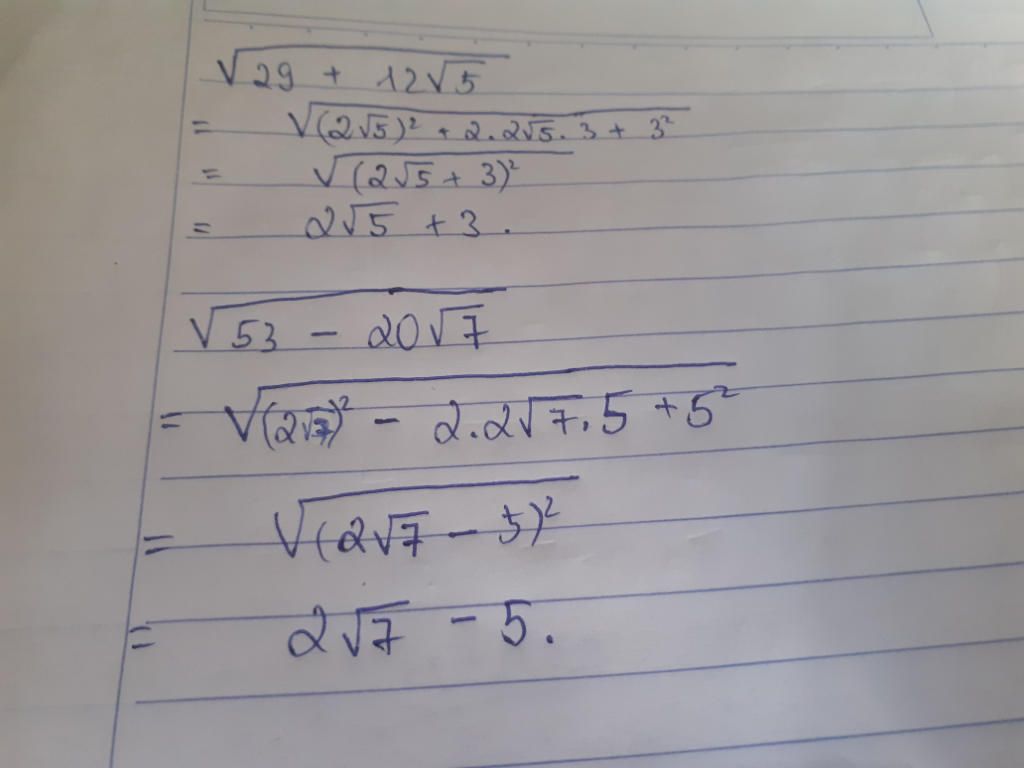 √(29 + 12√5)
= √((2√5)² + 2.2√5.3 + 3²)
= √((2√5 + 3)²)
= 2√5 + 3.
√(53 - 20√7)
= √((2√7)² - 2.2√7.5 + 5²)
= √((2√7 - 5)²)
= 2√7 - 5.